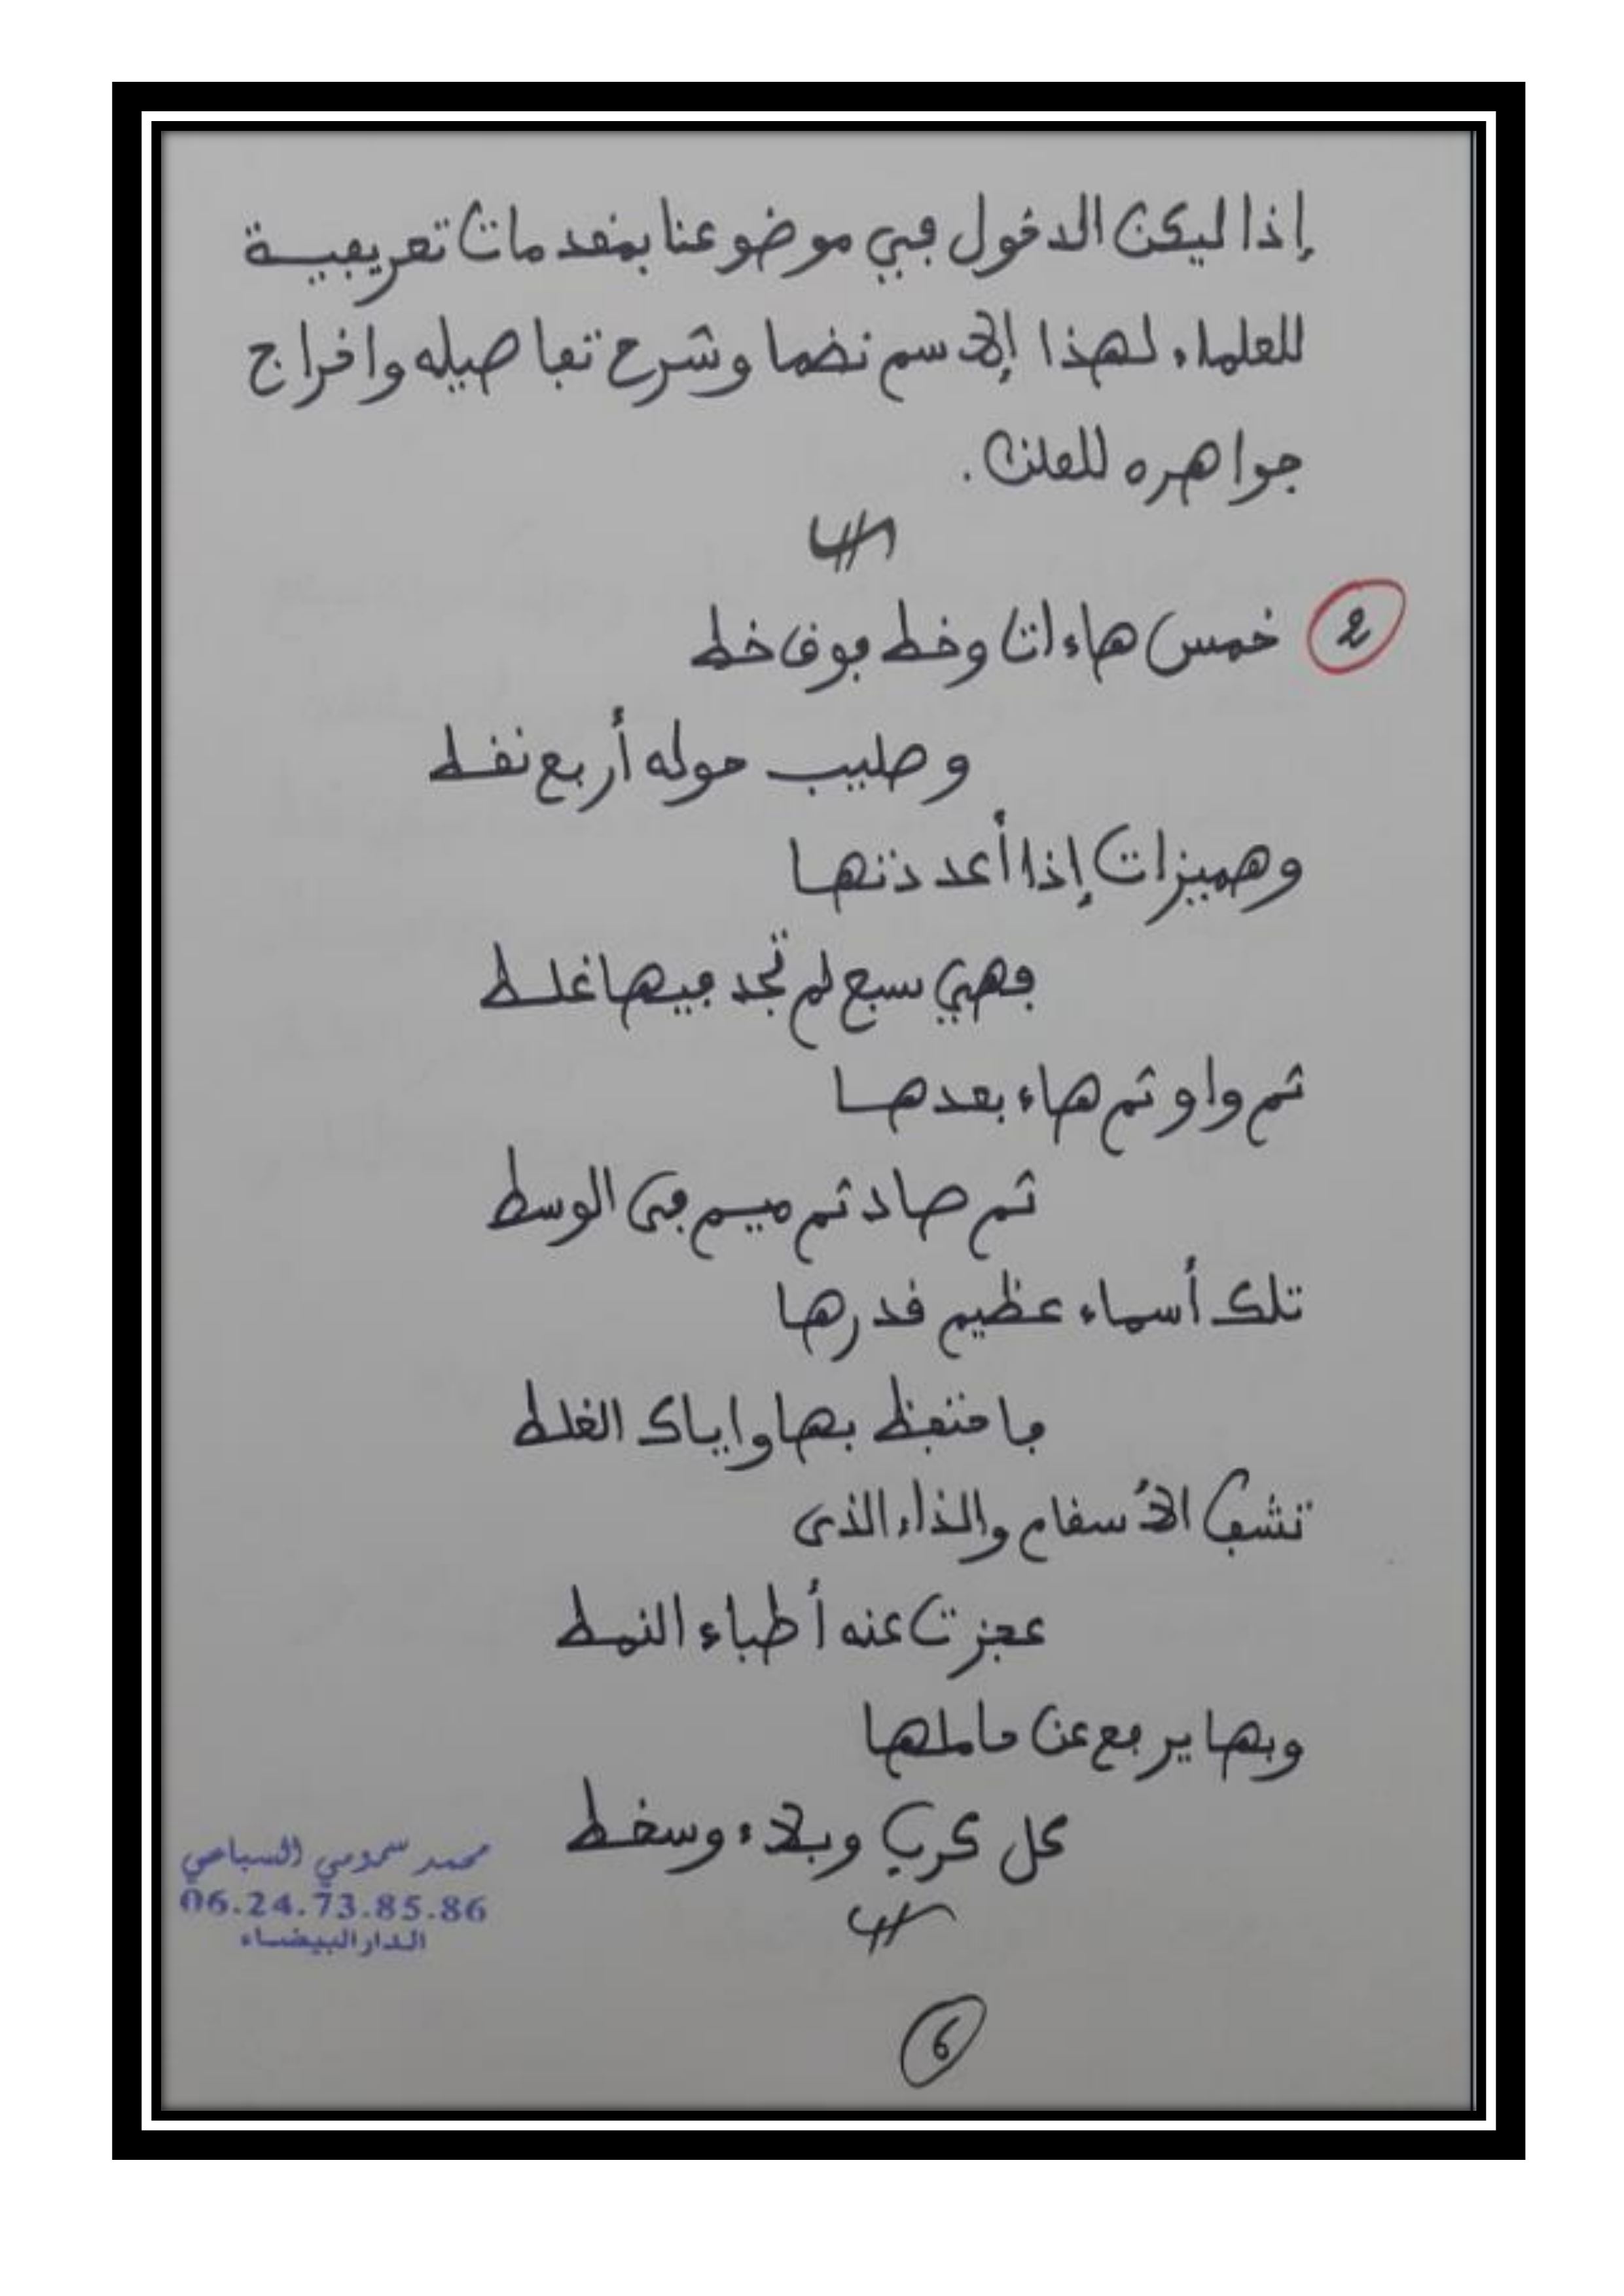 إذا ليكن الدخول في موضوعنا بمقدمات تعريفية
للعلماء لهذا الإسم نضما وشرح تفاصيله واخراج
جواهره للعلن.
2 خمس هاءات وخط فوق خط
وصليب حوله أربع نقط
وهميزات إذا أعددتها
فهي سبع لم تجد فيها غلط
ثم واو ثم هاء بعدها
ثم صاد ثم ميم في الوسط
تلك أسماء عظيم قدرها
فاحتفظ بها واياك الغلط
تشف الأسقام والذاء الذى
عجزت عنه أطباء النمط
وبها يرفع عن حاملها
كل كرب وبلاء وسخط
محمد سمومي السباعي
06.24.73.85.86
الدار البيضاء
6